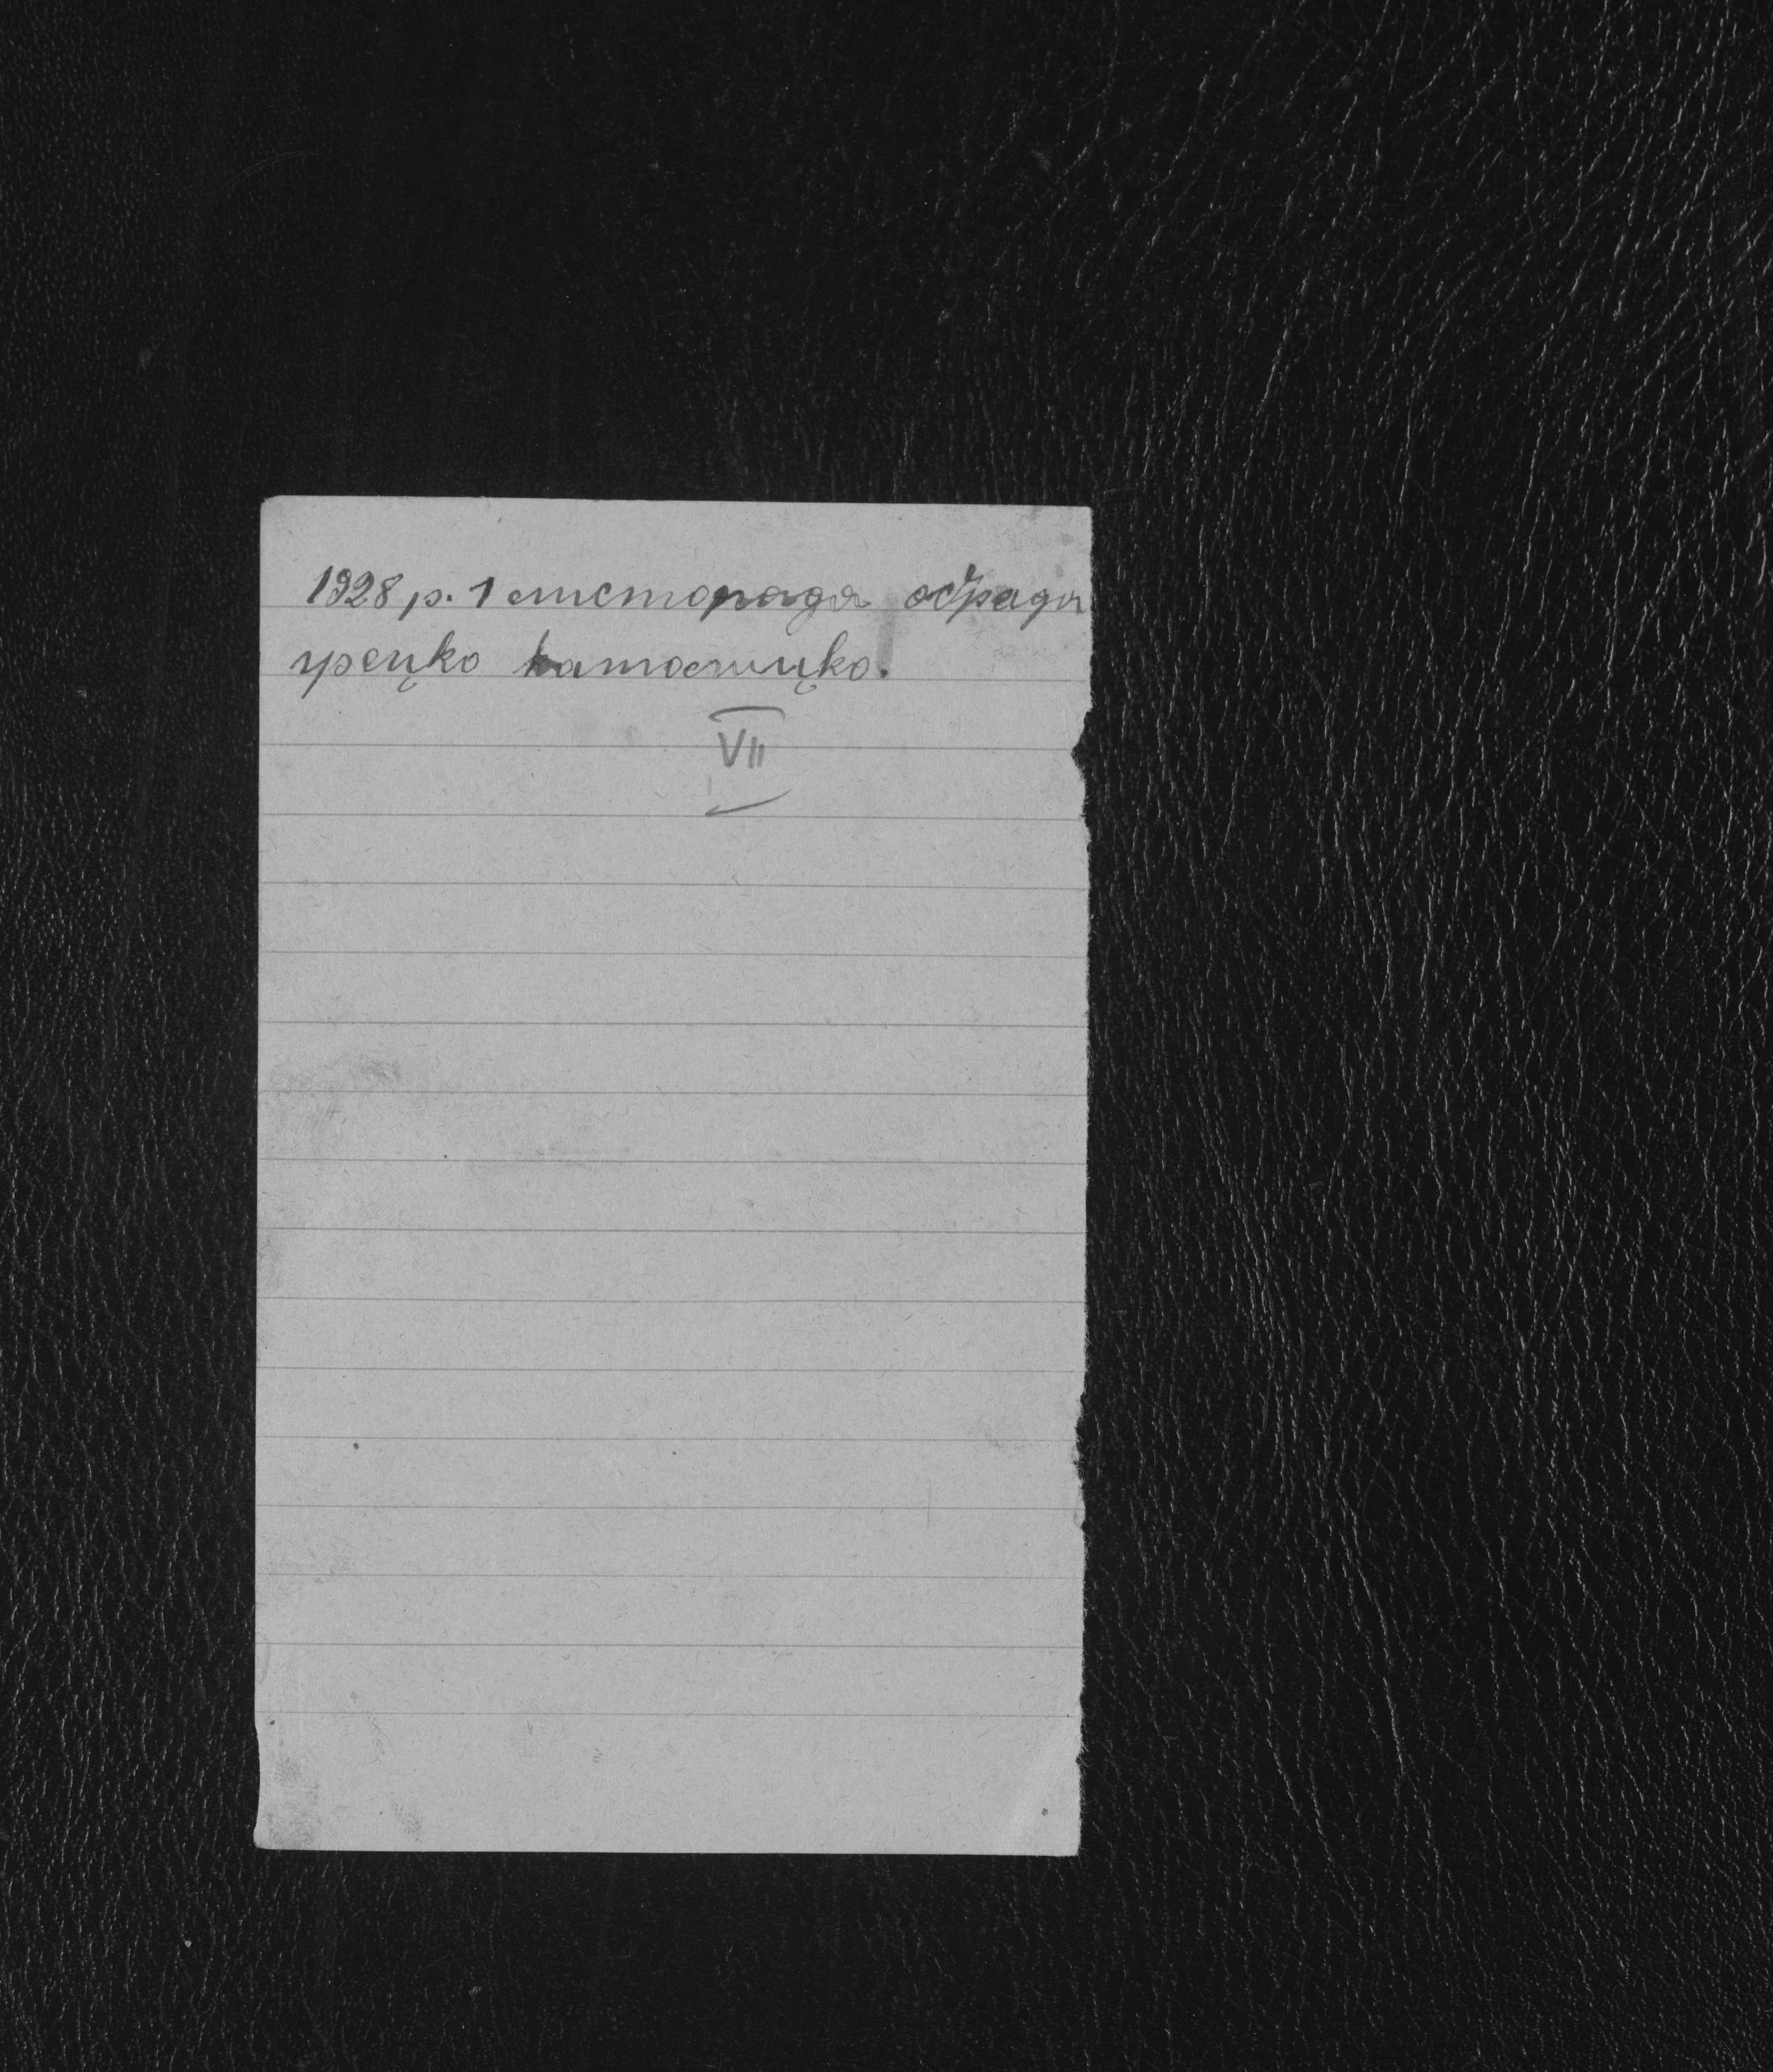 1928 р. 1 листопада обрада
грецко католицко.
VII